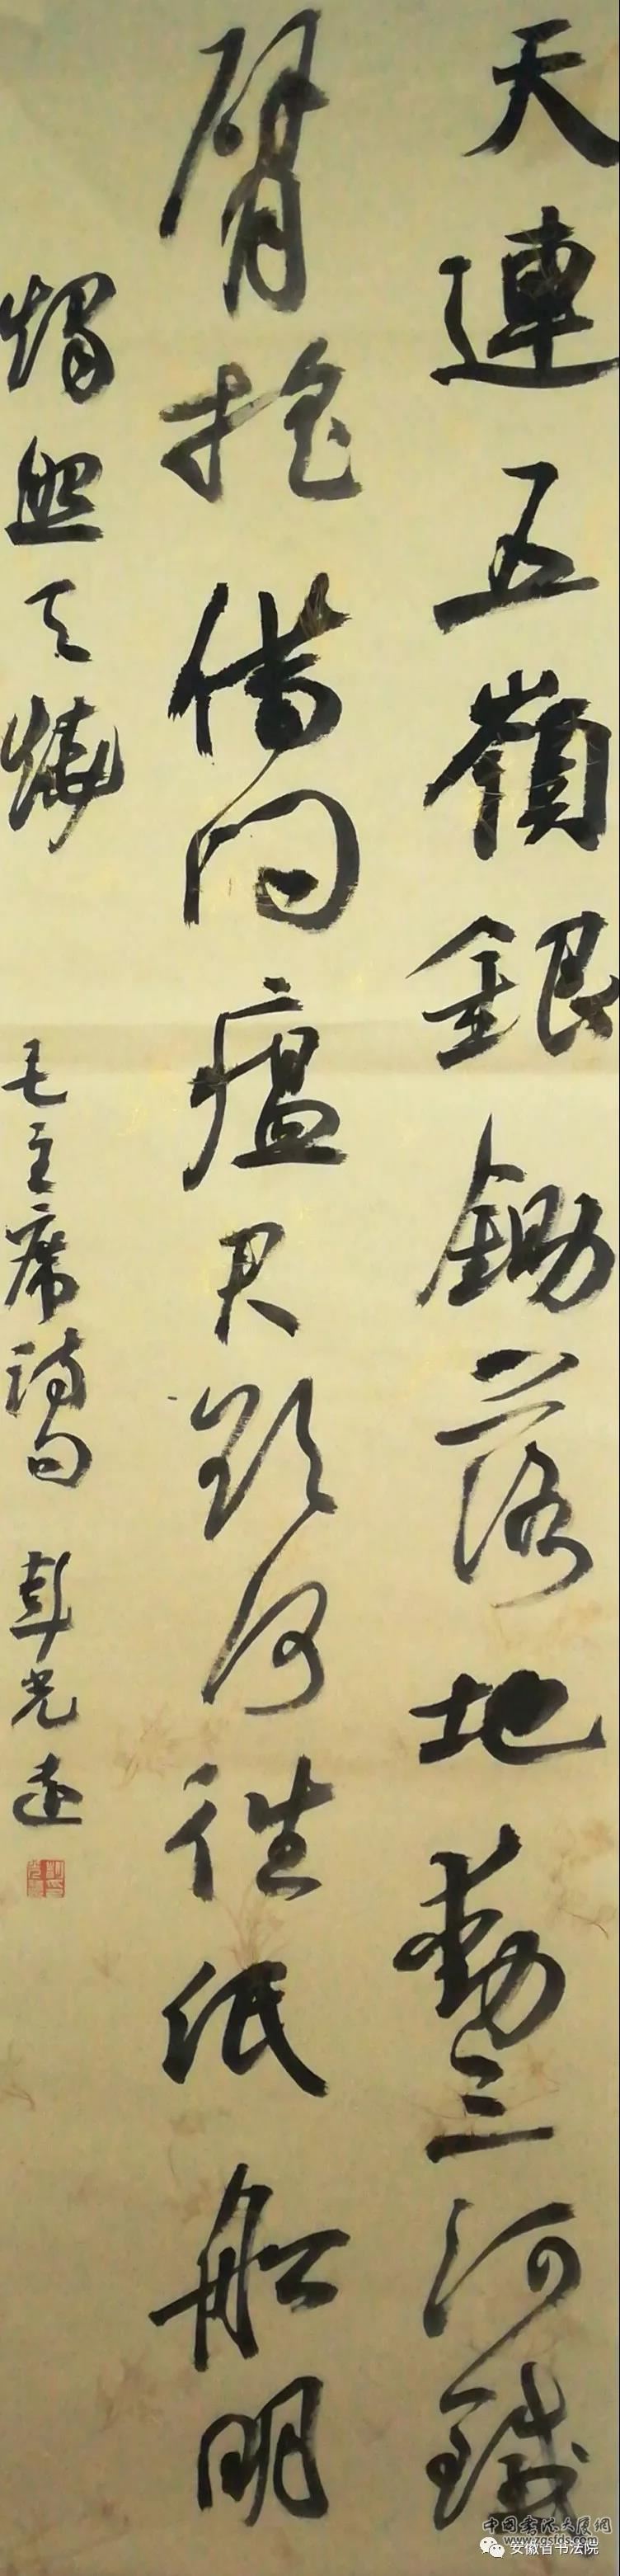 天連五嶺銀鋤落地動三河鐵
臂摇借问瘟君欲何往纸船明
燭照天燒
毛主席詩句 彭光远
中國書法大厦網
www.zgsfds.com
安徽省书法院